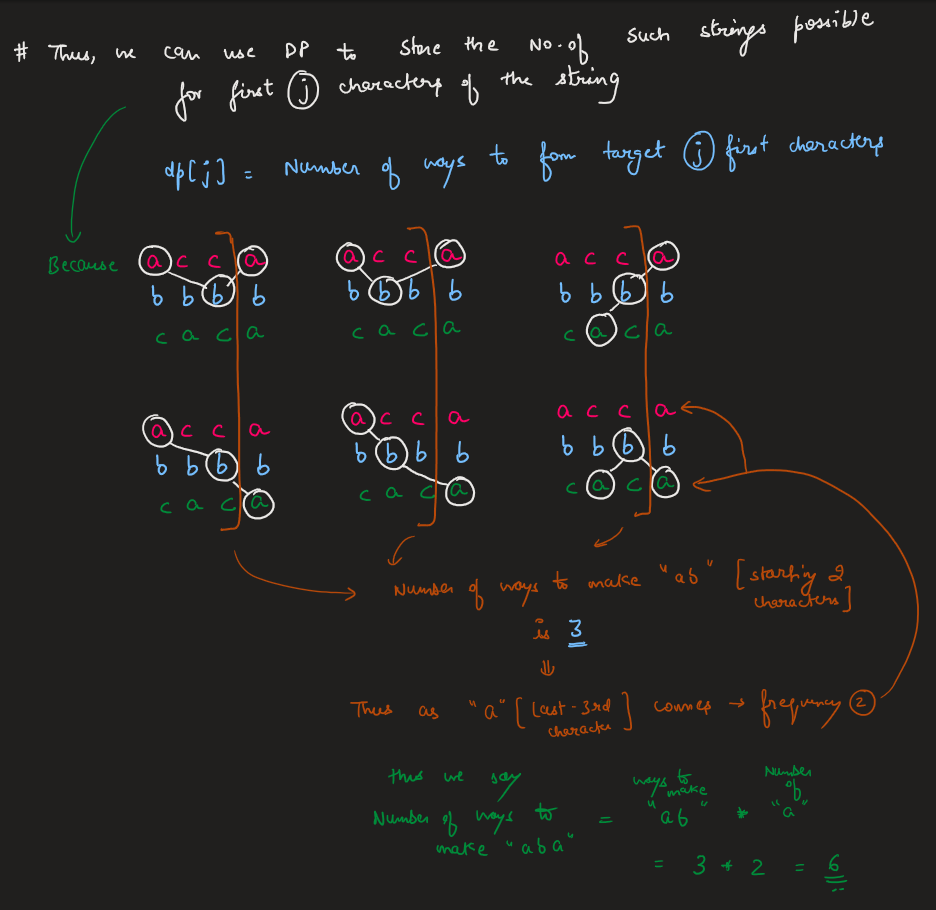 # Thus, we can use DP to store the No. of such strings possible
for first j characters of the string
dp[j] = Number of ways to form target j first characters
Because
a c c a
b b b b
c a c a
a c c a
b b b b
c a c a
a c c a
b b b b
c a c a
a c c a
b b b b
c a c a
a c c a
b b b b
c a c a
a c c a
b b b b
c a c a
Number of ways to make "ab" [starting 2
characters]
is 3
⇓
Thus as "a" [last-3rd
character] comes → frequency 2
thus we say
Number of ways to
make "aba"
=
ways to
make
"ab"
*
Number
of
"a"
= 3 * 2 = 6